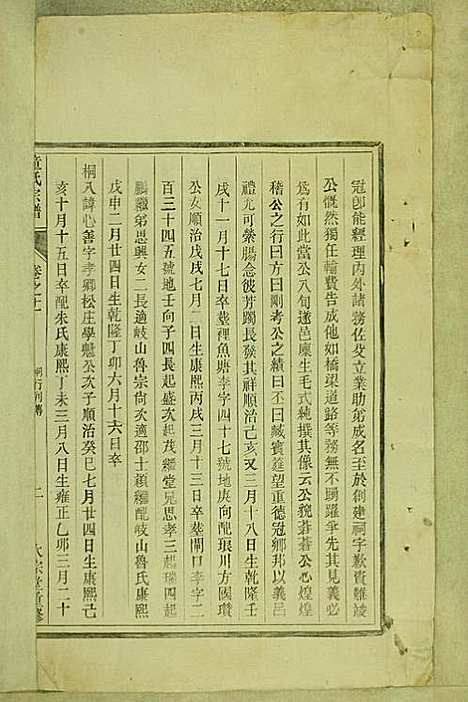 冠即能經理內外諸務佐父立業助弟成名至於創建祠宇歉資難竣
公慨然獨任輸費告成他如橋渠道路等務無不踴躍爭先其見義必
為有如此當公八旬遂邑廩生毛式純撰其像云公貌蒼蒼公心煌煌
稽公之行曰方曰剛考公之績曰否曰臧賓筵望重德冠鄉邦以義以
禮尤可縈腸念彼芳躅長發其祥順治己亥又三月十八日生乾隆壬
戌十一月十七日卒塟裡魚塘李字四十七號地庚向配琅川方國瓚
公女順治戊戌七月二日生康熙丙戌三月十三日卒塟閘口李字二
百三十四五號地壬向子四長起盛次起茂繼堂兄思孝三起瑞四起
鵬繼弟思興女二長適岐山魯宗尚次適邵士頴繼配岐山魯氏康熙
戊申二月廿四日生乾隆丁卯六月十六日卒
桐八諱心善字孝卿松庄學魁公次子順治癸巳七月廿四日生康熙己
亥十月十五日卒配朱氏康熙丁未三月八日生雍正乙卯三月二十
氏宗譜
卷之十一
桐行列傳
二